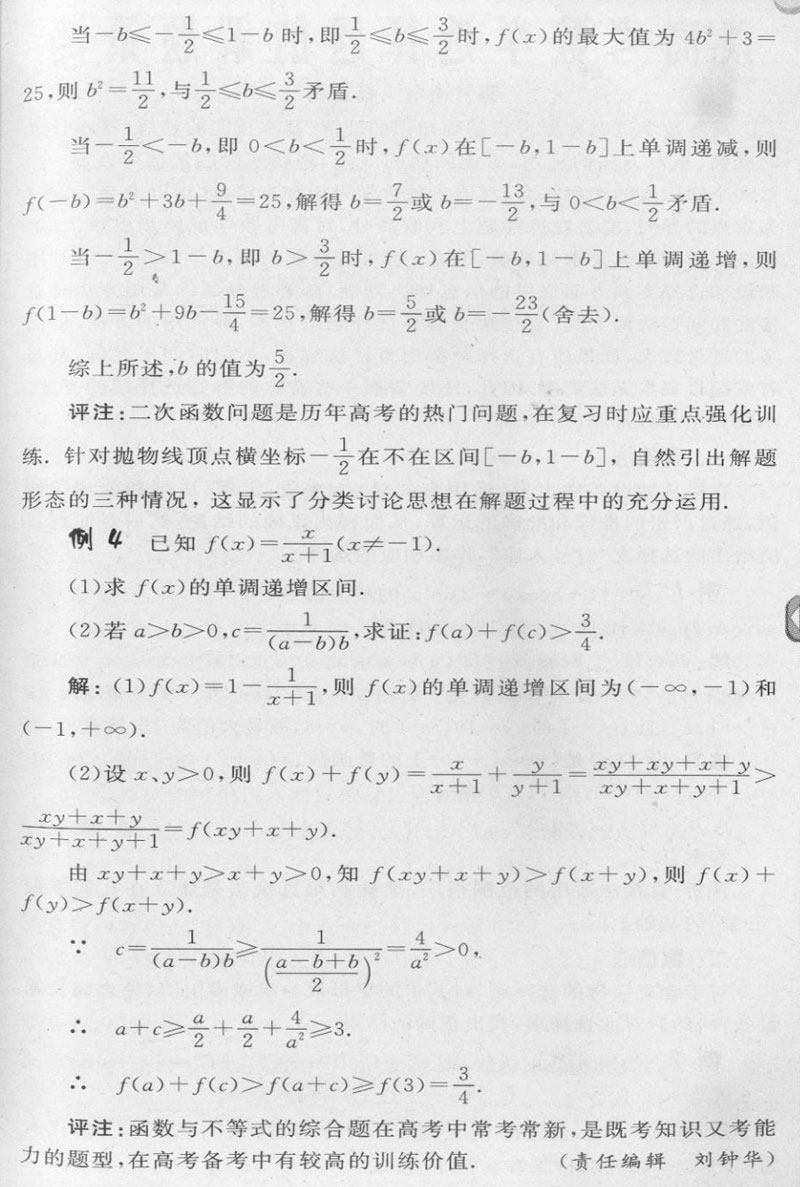 当−b≤−1/2≤1−b 时,即1/2≤b≤3/2时,f(x)的最大值为 4b²+3=
25,则 b²=11/2,与1/2≤b≤3/2矛盾.
当−1/2<−b,即 0<b<1/2时,f(x)在[−b,1−b]上单调递减,则
f(−b)=b²+3b+9/4=25,解得 b=7/2或 b=−13/2,与0<b<1/2矛盾.
当−1/2>1−b,即 b>3/2时,f(x)在[−b,1−b]上单调递增,则
f(1−b)=b²+9b−15/4=25,解得 b=5/2或 b=−23/2(舍去).
综上所述,b 的值为5/2.
评注:二次函数问题是历年高考的热门问题,在复习时应重点强化训
练. 针对抛物线顶点横坐标−1/2在不在区间[−b,1−b], 自然引出解题
形态的三种情况, 这显示了分类讨论思想在解题过程中的充分运用.
例 4 已知 f(x)=x/(x+1)(x≠−1).
(1)求 f(x)的单调递增区间.
(2)若 a>b>0,c=1/((a−b)b),求证:f(a)+f(c)>3/4.
解:(1)f(x)=1−1/(x+1),则 f(x)的单调递增区间为(−∞,−1)和
(−1,+∞).
(2)设 x、y>0,则 f(x)+f(y)=x/(x+1)+y/(y+1)=(xy+xy+x+y)/(xy+x+y+1)>
(xy+x+y)/(xy+x+y+1)=f(xy+x+y).
由 xy+x+y>x+y>0,知 f(xy+x+y)>f(x+y),则 f(x)+
f(y)>f(x+y).
∵ c=1/((a−b)b)≥1/((a−b+b)/2)²=4/a²>0,
∴ a+c≥a/2+a/2+4/a²≥3.
∴ f(a)+f(c)>f(a+c)≥f(3)=3/4.
评注:函数与不等式的综合题在高考中常考常新,是既考知识又考能
力的题型,在高考备考中有较高的训练价值. (责任编辑 刘钟华)